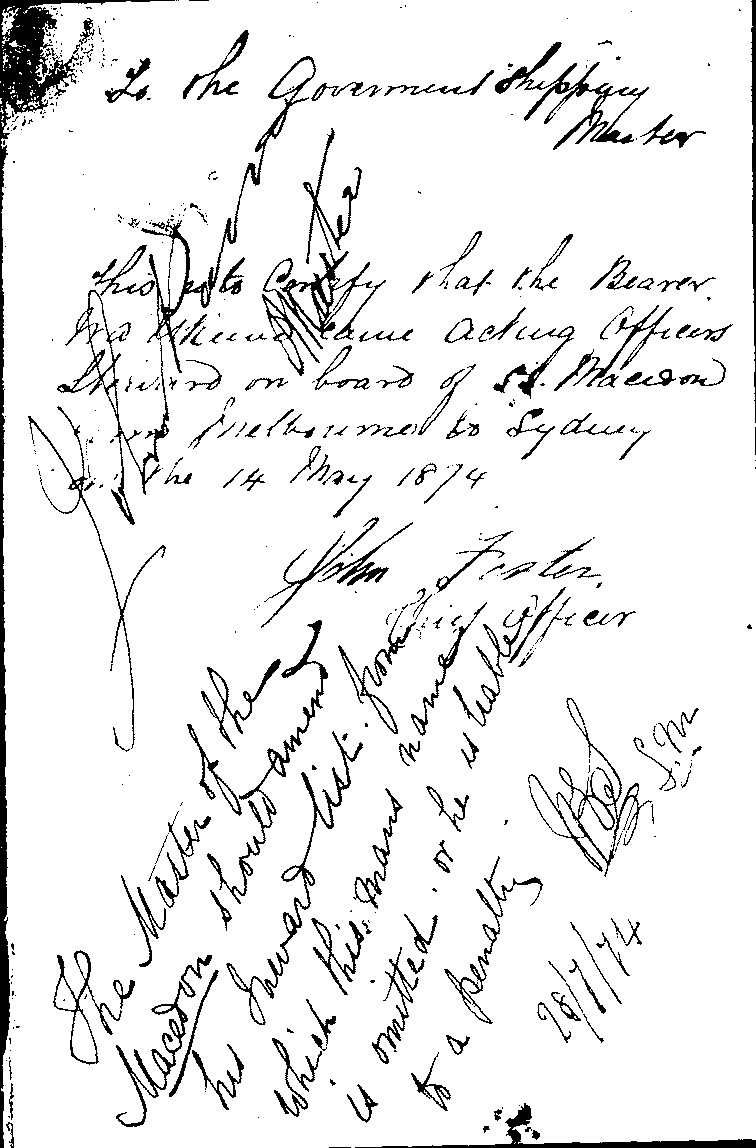 To the Goverment Shipping
Master
This is to Certify that the Bearer
came Acting Officers
Steward on board of SS. Macedon
from Melbourne to Sydney
on the 14 May 1874
John Foster
Chief Officer
Master
The Master of the
Macedon should amend
his Inward list. from
which this mans name
is omitted. or he is liable
to a penalty
S.M
28/7/74